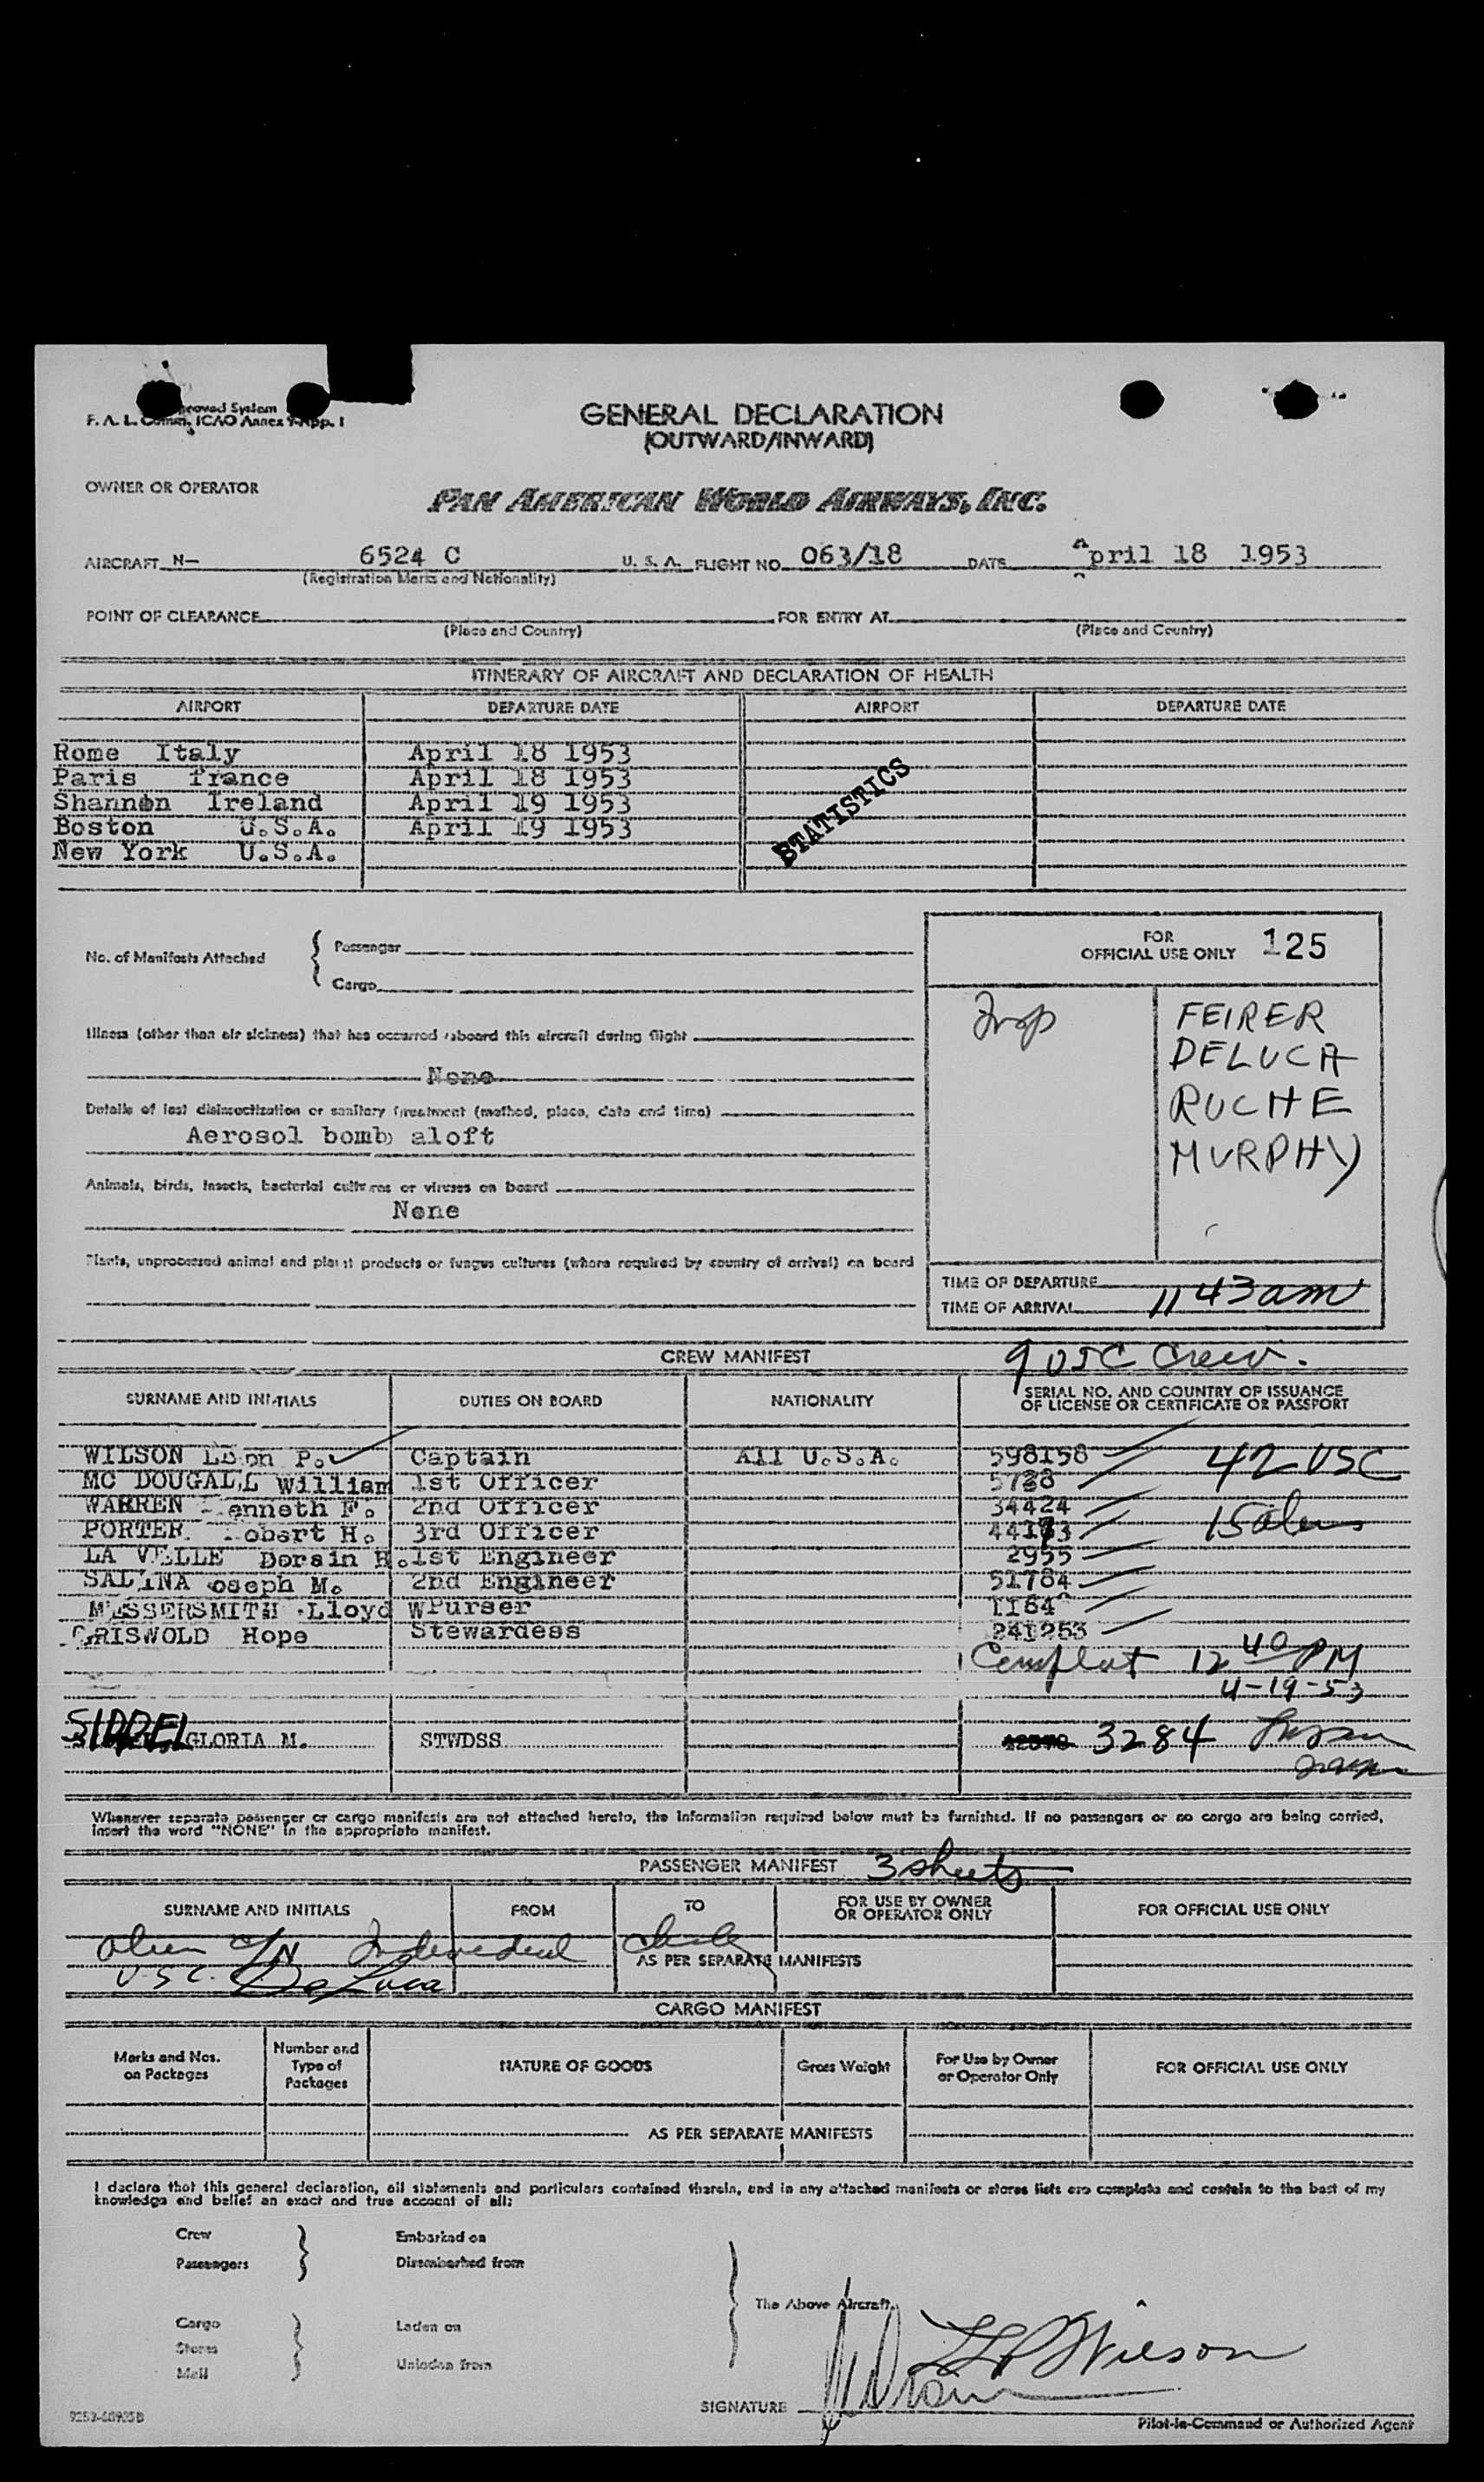 F. A. L. Comm. ICAO Annex 9-App. 1
GENERAL DECLARATION
(OUTWARD/INWARD)
OWNER OR OPERATOR
PAN AMERICAN WORLD AIRWAYS, INC.
AIRCRAFT N- 6524 C U. S. A. FLIGHT NO. 063/18 DATE April 18 1953
(Registration Marks and Nationality)
POINT OF CLEARANCE FOR ENTRY AT
(Place and Country) (Place and Country)
ITINERARY OF AIRCRAFT AND DECLARATION OF HEALTH
AIRPORT DEPARTURE DATE AIRPORT DEPARTURE DATE
Rome Italy April 18 1953
Paris France April 18 1953
Shannon Ireland April 19 1953
Boston U.S.A. April 19 1953
New York U.S.A.
STATISTICS
No. of Manifests Attached { Passenger
Cargo
FOR
OFFICIAL USE ONLY 125
Insp
FEIRER
DELUCA
RUCHE
MURPHY
Illness (other than air sickness) that has occurred aboard this aircraft during flight
None
Details of last disinsectization or sanitary treatment (method, place, date and time)
Aerosol bomb aloft
Animals, birds, insects, bacterial cultures or viruses on board
None
Plants, unprocessed animal and plant products or fungus cultures (where required by country of arrival) on board
TIME OF DEPARTURE
TIME OF ARRIVAL 11 43 am
CREW MANIFEST 9 USC Crew.
SURNAME AND INITIALS DUTIES ON BOARD NATIONALITY SERIAL NO. AND COUNTRY OF ISSUANCE
OF LICENSE OR CERTIFICATE OR PASSPORT
WILSON Leon P. Captain All U.S.A. 598158 42 USC
MC DOUGALL William 1st Officer 5738
WARREN enneth F. 2nd Officer 34424
PORTER obert H. 3rd Officer 44173 15 aliens
LA VELLE Dorsin H. 1st Engineer 2955
SALINA oseph M. 2nd Engineer 51784
MESSERSMITH Lloyd W Purser 1164
GRISWOLD Hope Stewardess 241253
Complet 12 40 PM
4-19-53
SIDDEL GLORIA M. STWDSS 3284
Whenever separate passenger or cargo manifests are not attached hereto, the information required below must be furnished. If no passengers or no cargo are being carried,
insert the word "NONE" in the appropriate manifest.
PASSENGER MANIFEST 3 sheets
SURNAME AND INITIALS FROM TO FOR USE BY OWNER
OR OPERATOR ONLY FOR OFFICIAL USE ONLY
alien
AS PER SEPARATE MANIFESTS
U.S.C. DeLuca
CARGO MANIFEST
Marks and Nos.
on Packages Number and
Type of
Packages NATURE OF GOODS Gross Weight For Use by Owner
or Operator Only FOR OFFICIAL USE ONLY
AS PER SEPARATE MANIFESTS
I declare that this general declaration, all statements and particulars contained therein, and in any attached manifests or stores lists are complete and contain to the best of my
knowledge and belief an exact and true account of all:
Crew Embarked on
Passengers Disembarked from
The Above Aircraft.
Cargo Laden on
Stores
Mail Unladen from
L P Wilson
SIGNATURE
Pilot-in-Command or Authorized Agent